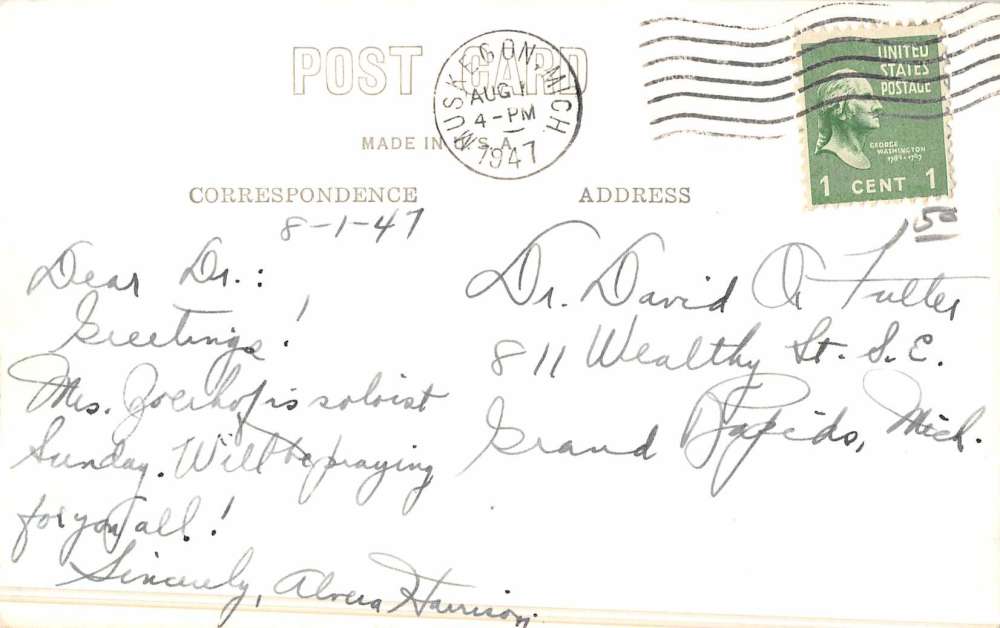 POST CARD
MADE IN U.S.A.
MUSKEGON, MICH.
AUG 1
4-PM
1947
UNITED
STATES
POSTAGE
GEORGE
WASHINGTON
1789-1797
1 CENT 1
CORRESPONDENCE
8-1-47
Dear Dr.:
Greetings!
Mrs. Zoerhof is soloist
Sunday. Will be praying
for you all!
Sincerely, Alvera Harrison
ADDRESS
Dr. David O. Fuller
811 Wealthy St. S.E.
Grand Rapids, Mich.